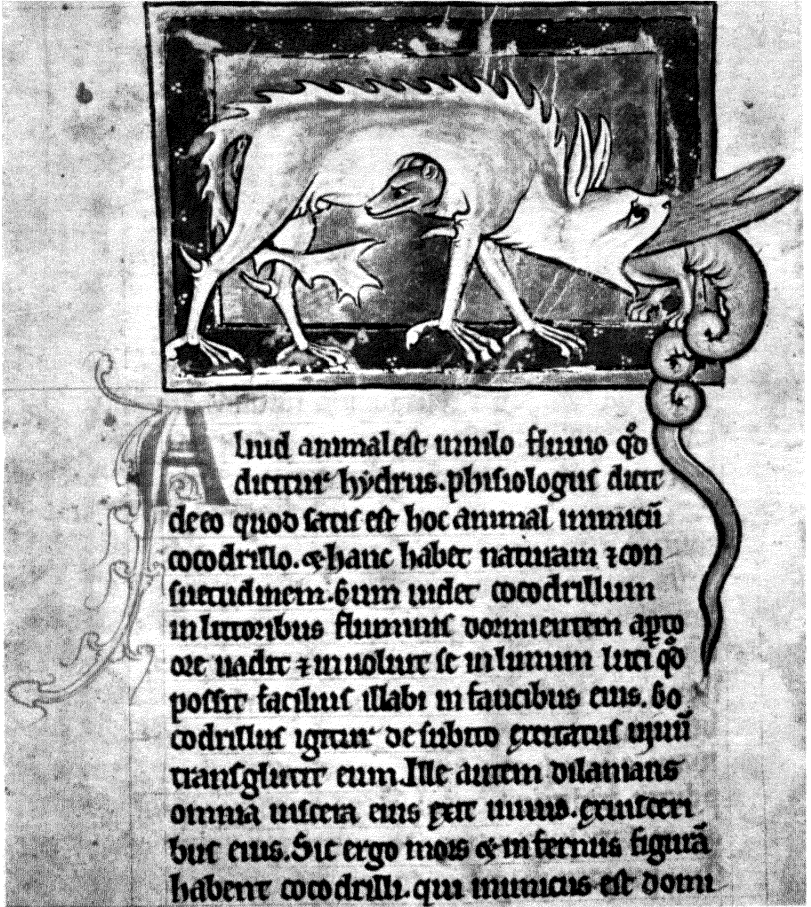 Aliud animal est in nilo fluuio qͦd
dicitur hẏdrus. phisiologus dicit
de eo quod satis est hoc animal inimicū
cocodrillo. & hanc habet naturam ⁊ con
suetudinem. Cum uidet cocodrillum
in littoribus fluminis dormientem aꝑto
ore uadit ⁊ inuoluit se in limum luti qͦd
possit facilius illabi in faucibus eius. Co
codrillus igitur de subito excitatus uiuū
transglutit eum. Ille autem dilanians
omnia uiscera eius exit uiuus. ex uisceri
bus eius. Sic ergo mors & infernus figurā
habent cocodrilli. qui inimicus est domi